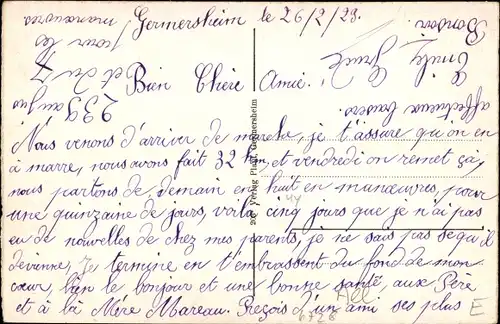 Germersheim le 26/2/23.
Bien Chère Amie.
Nous venons d'arriver de marche, je t'assure qu'on en
à marre, nous avons fait 32 km, et vendredi on remet ça,
nous partons de demain en huit en manœuvres, pour
une quinzaine de jours, voila cinq jours que je n'ai pas
eu de nouvelles de chez mes parents, je ne sais pas se qu'il
devienne, Je termine en t'embrassent du fond de mon
cœur, bien le bonjour et une bonne santé, aux Père
et à la Mère Mareau. Reçois d'un ami ses plus
affectueux baisers.
Emile
Bonsoir
pour les
manœuvres
Verlag Germersheim
6728
E